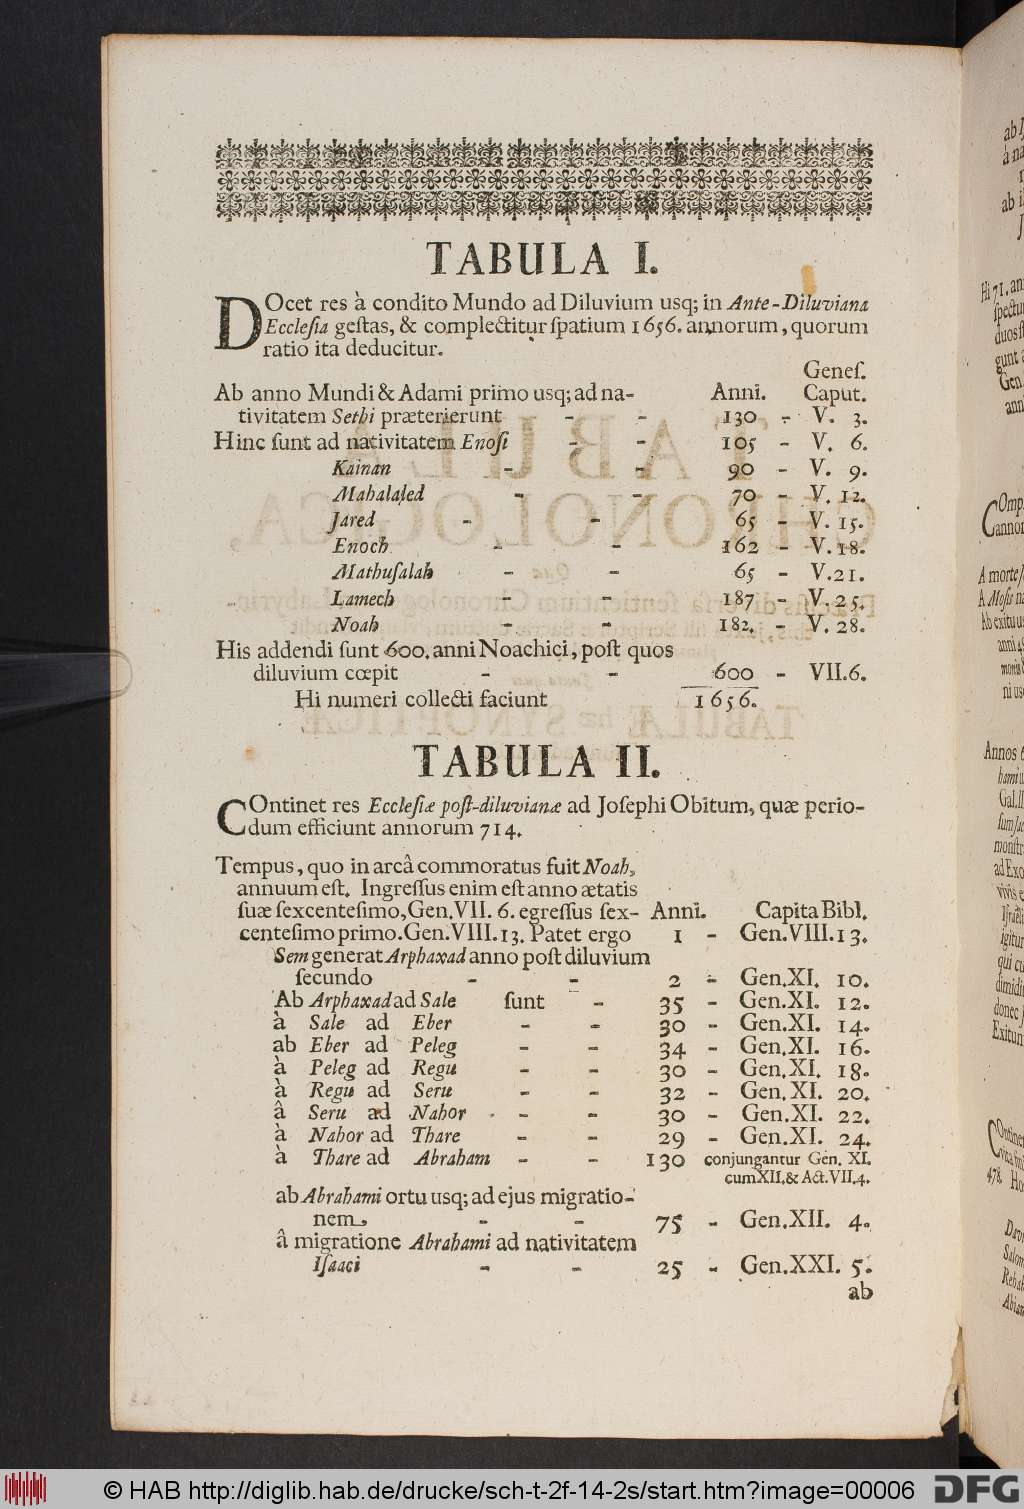 TABULA I.
DOcet res à condito Mundo ad Diluvium usq; in Ante-Diluviana
Ecclesia gestas, & complectitur spatium 1656. annorum, quorum
ratio ita deducitur.
Genes.
Ab anno Mundi & Adami primo usq; ad na- Anni. Caput.
tivitatem Sethi præterierunt - - 130 - V. 3.
Hinc sunt ad nativitatem Enosi - - 105 - V. 6.
Kainan - - 90 - V. 9.
Mahalaleel - - 70 - V. 12.
Jared - - 65 - V. 15.
Enoch - - 162 - V. 18.
Mathusalah - - 65 - V. 21.
Lamech - - 187 - V. 25.
Noah - - 182. - V. 28.
His addendi sunt 600. anni Noachici, post quos
diluvium cœpit - - 600 - VII. 6.
Hi numeri collecti faciunt 1656.
TABULA II.
COntinet res Ecclesiæ post-diluvianæ ad Josephi Obitum, quæ perio-
dum efficiunt annorum 714.
Tempus, quo in arcâ commoratus fuit Noah,
annuum est. Ingressus enim est anno ætatis
suæ sexcentesimo, Gen. VII. 6. egressus sex- Anni. Capita Bibl.
centesimo primo. Gen. VIII. 13. Patet ergo 1 - Gen. VIII. 13.
Sem generat Arphaxad anno post diluvium
secundo - - 2 - Gen. XI. 10.
Ab Arphaxad ad Sale sunt - 35 - Gen. XI. 12.
à Sale ad Eber - - 30 - Gen. XI. 14.
ab Eber ad Peleg - - 34 - Gen. XI. 16.
à Peleg ad Regu - - 30 - Gen. XI. 18.
à Regu ad Seru - - 32 - Gen. XI. 20.
â Seru ad Nahor - - 30 - Gen. XI. 22.
à Nahor ad Thare - - 29 - Gen. XI. 24.
à Thare ad Abraham - - 130 conjungantur Gen. XI.
cum XII. & Act. VII. 4.
ab Abrahami ortu usq; ad ejus migratio-
nem, - - 75 - Gen. XII. 4.
â migratione Abrahami ad nativitatem
Isaaci - - 25 - Gen. XXI. 5.
ab
© HAB http://diglib.hab.de/drucke/sch-t-2f-14-2s/start.htm?image=00006
DFG